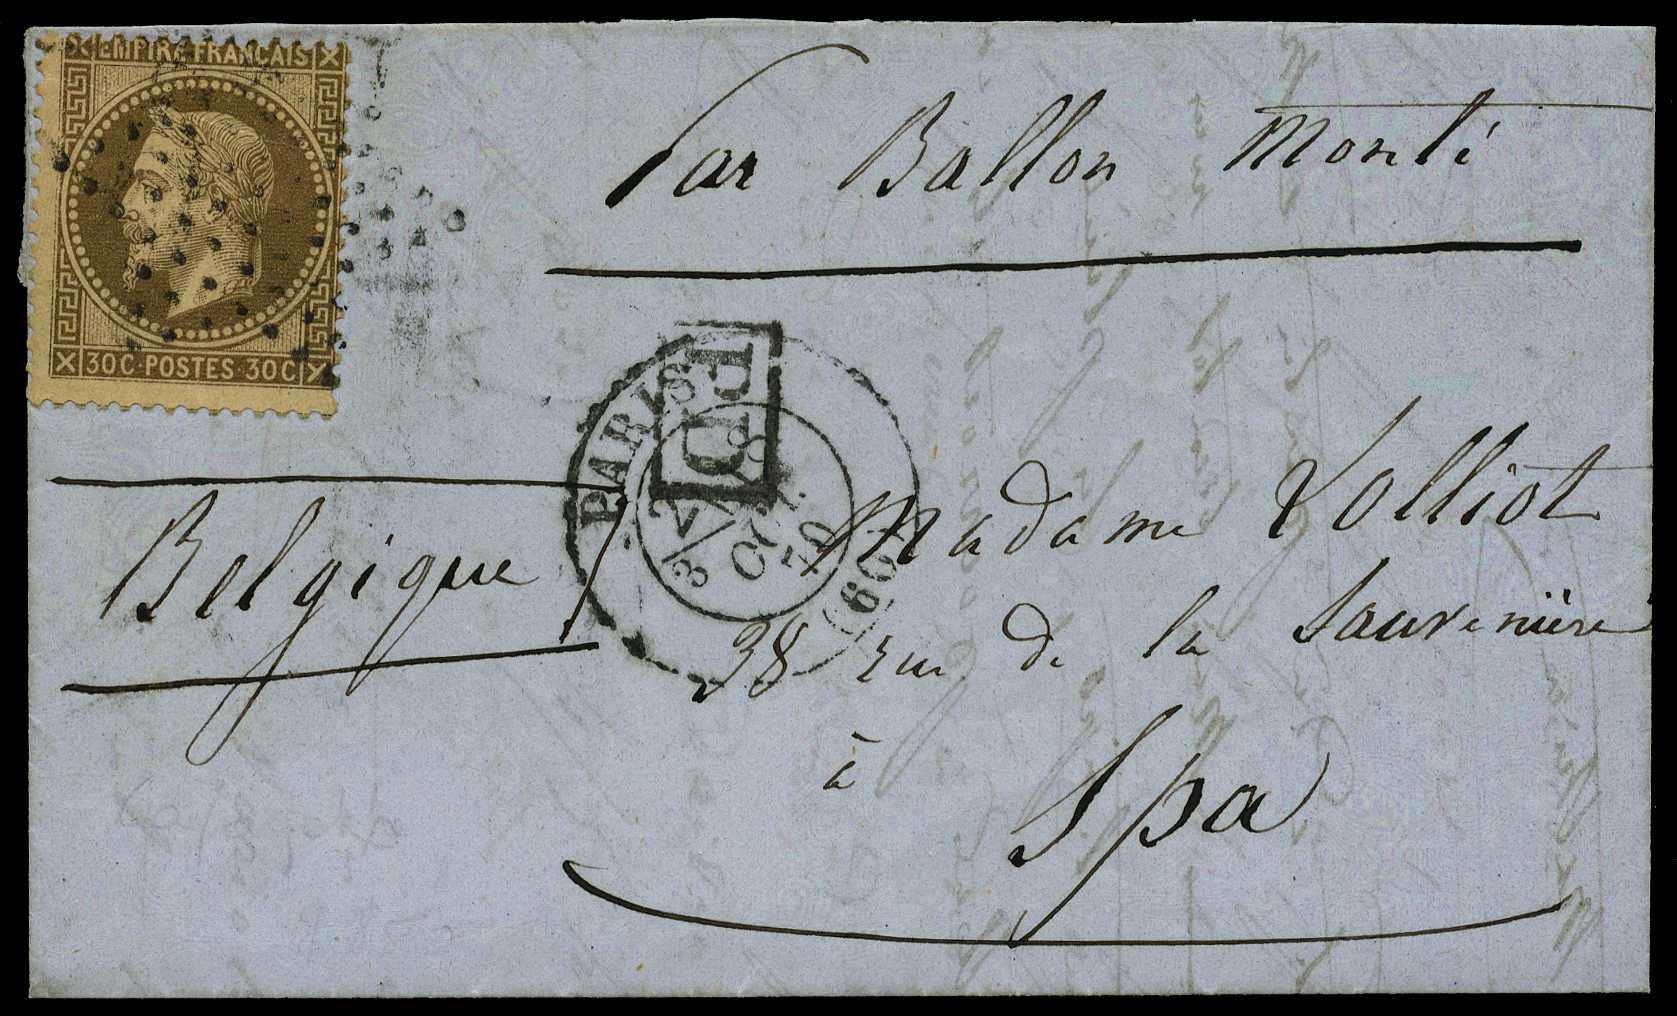 EMPIRE FRANÇAIS
30 C · POSTES · 30 C
Par Ballon Monté
PARIS
PD
OCT.
70
(60)
Belgique
Madame Lolliot
38 rue de la Sauvenière
à
Spa